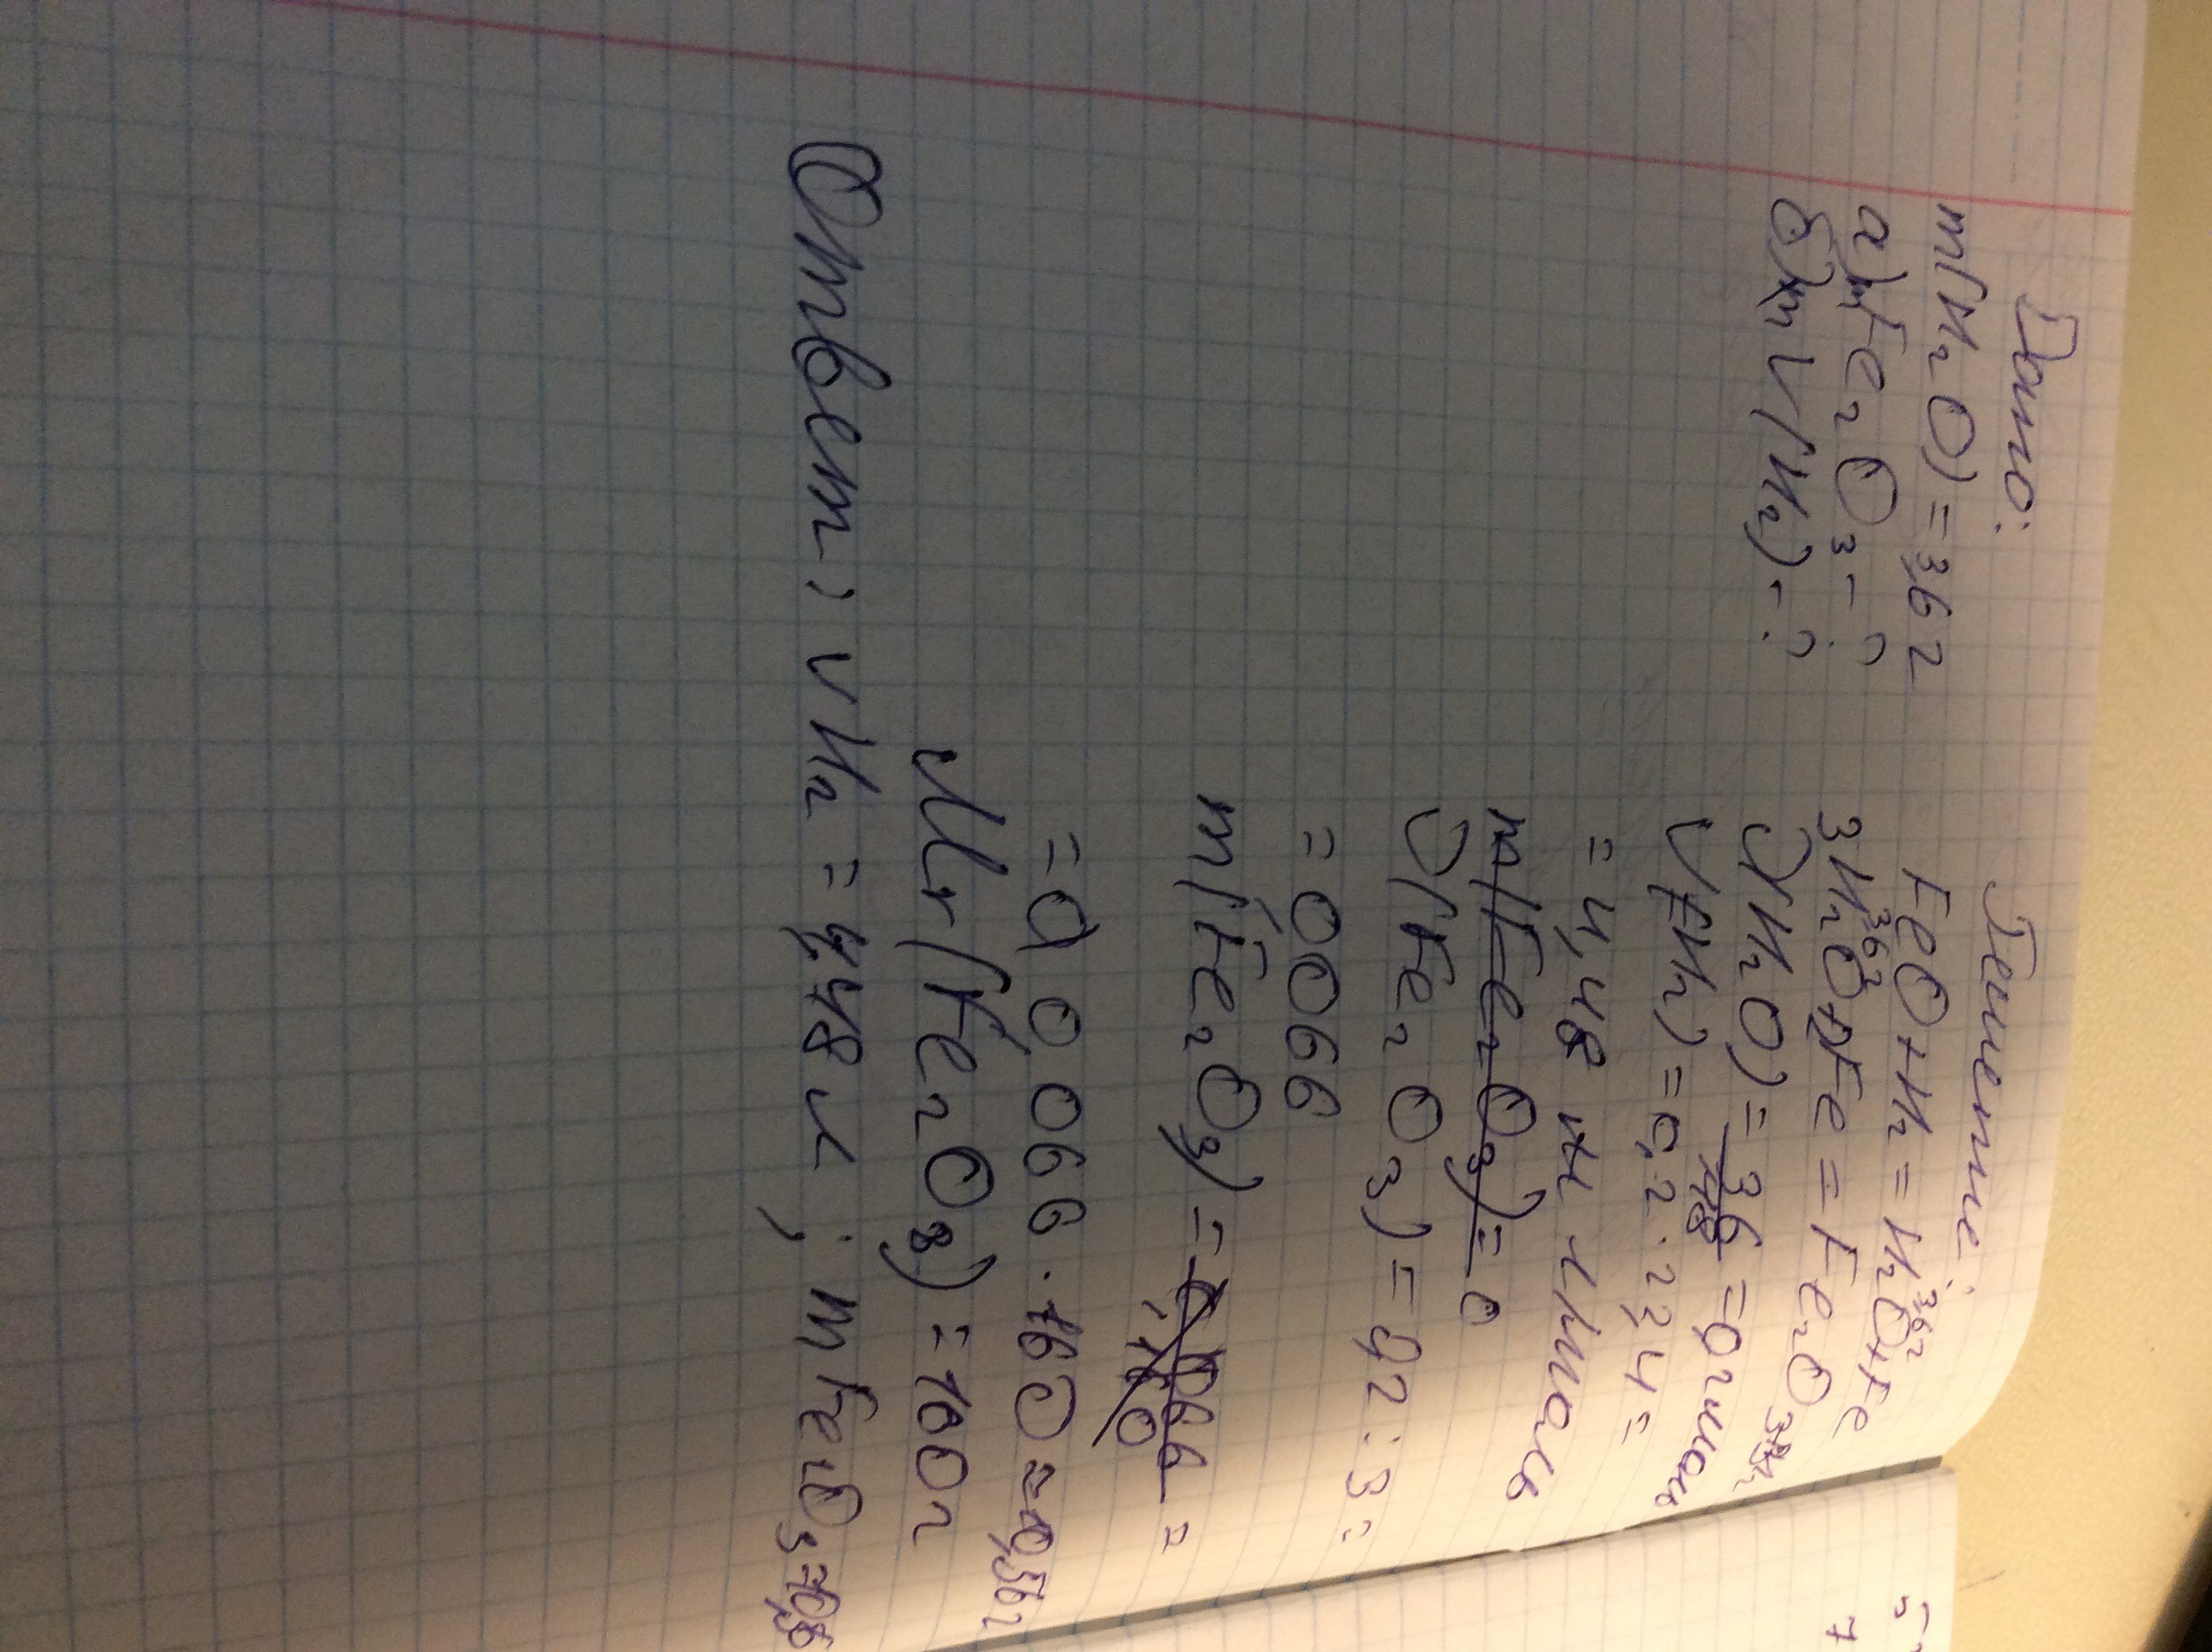 Дано:
m(H₂O) = 3,6 г
а) m Fe₂O₃ - ?
б) V(H₂) - ?
Решение:
FeO + H₂ = H₂O + Fe
3H₂O + 2Fe = Fe₂O₃ +
ν(H₂O) = 3,6 / 18 = 0,2 моль
V(H₂) = 0,2 · 22,4 =
= 4,48 л
ν(Fe₂O₃) = 0,2 : 3 =
= 0,066
m(Fe₂O₃) =
= 0,066 · 160 = 10,56 г
Mr(Fe₂O₃) = 160 г
Ответ: VH₂ = 4,48 л ; m Fe₂O₃ =